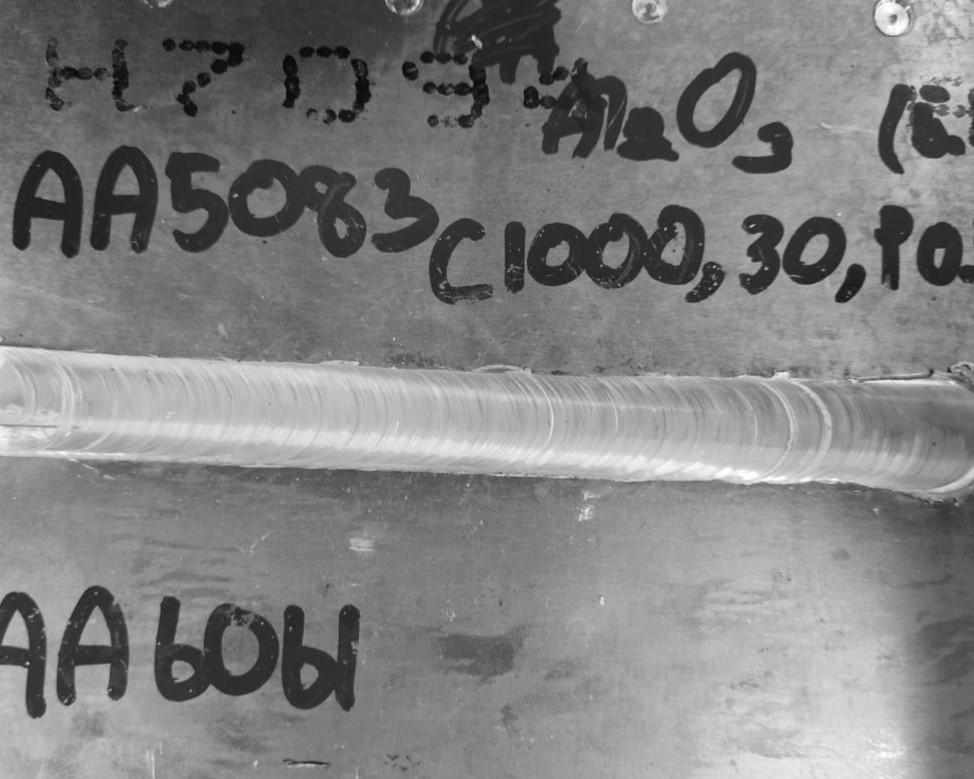 H709 Al2O3
AA5083
C1000,30,
AA6061